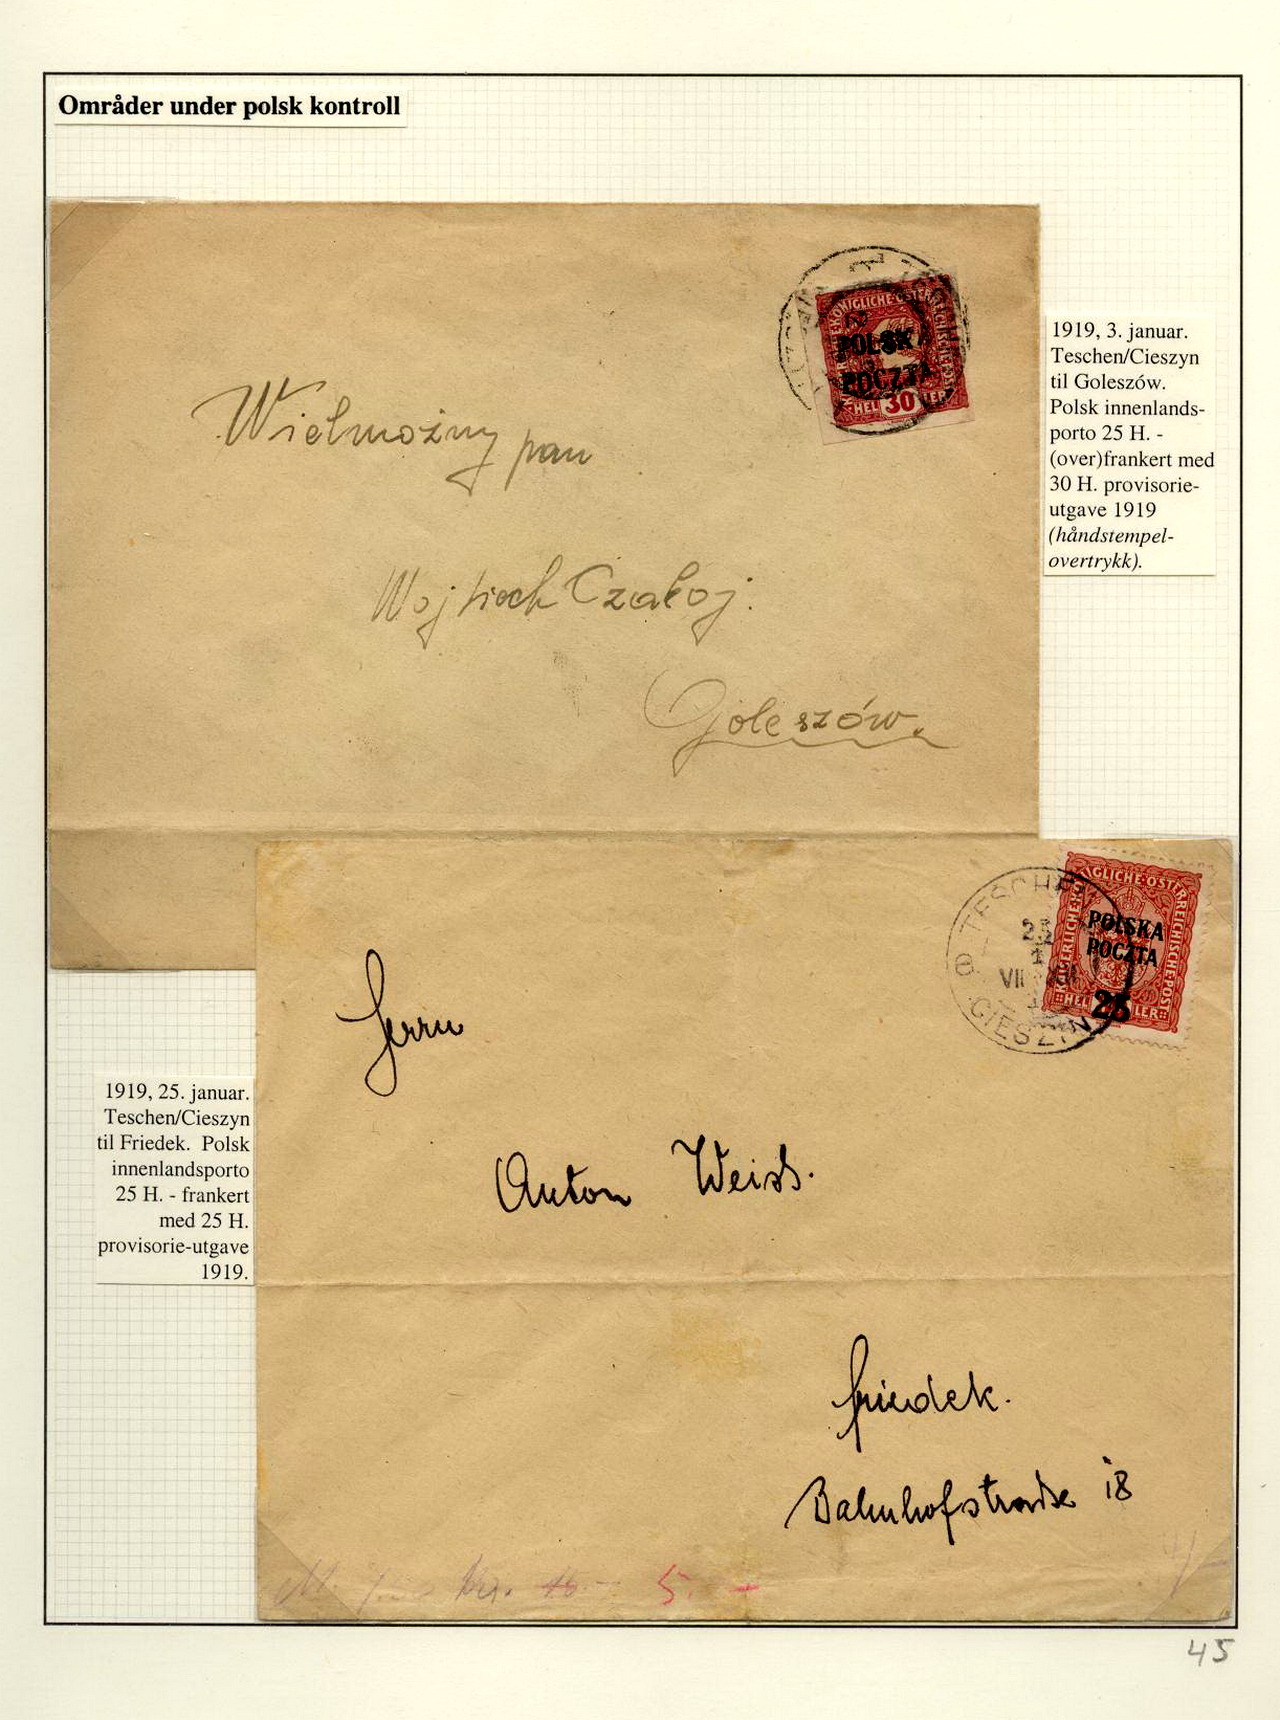 Områder under polsk kontroll
KÖNIGLICHE·ÖSTERREICHISCHE·POST
POLSKA
POCZTA
HELLER
30
1919, 3. januar.
Teschen/Cieszyn
til Goleszów.
Polsk innenlands-
porto 25 H. -
(over)frankert med
30 H. provisorie-
utgave 1919
(håndstempel-
overtrykk).
Wielmożny pan
Wojciech
Goleszów.
TESCHEN
25
1
VII
CIESZYN
KAISERLICHE·KÖNIGLICHE·ÖSTERREICHISCHE·POST
POLSKA
POCZTA
HELLER
25
Herrn
Anton Weiss.
1919, 25. januar.
Teschen/Cieszyn
til Friedek. Polsk
innenlandsporto
25 H. - frankert
med 25 H.
provisorie-utgave
1919.
Friedek.
Bahnhofstraße 18
5
45